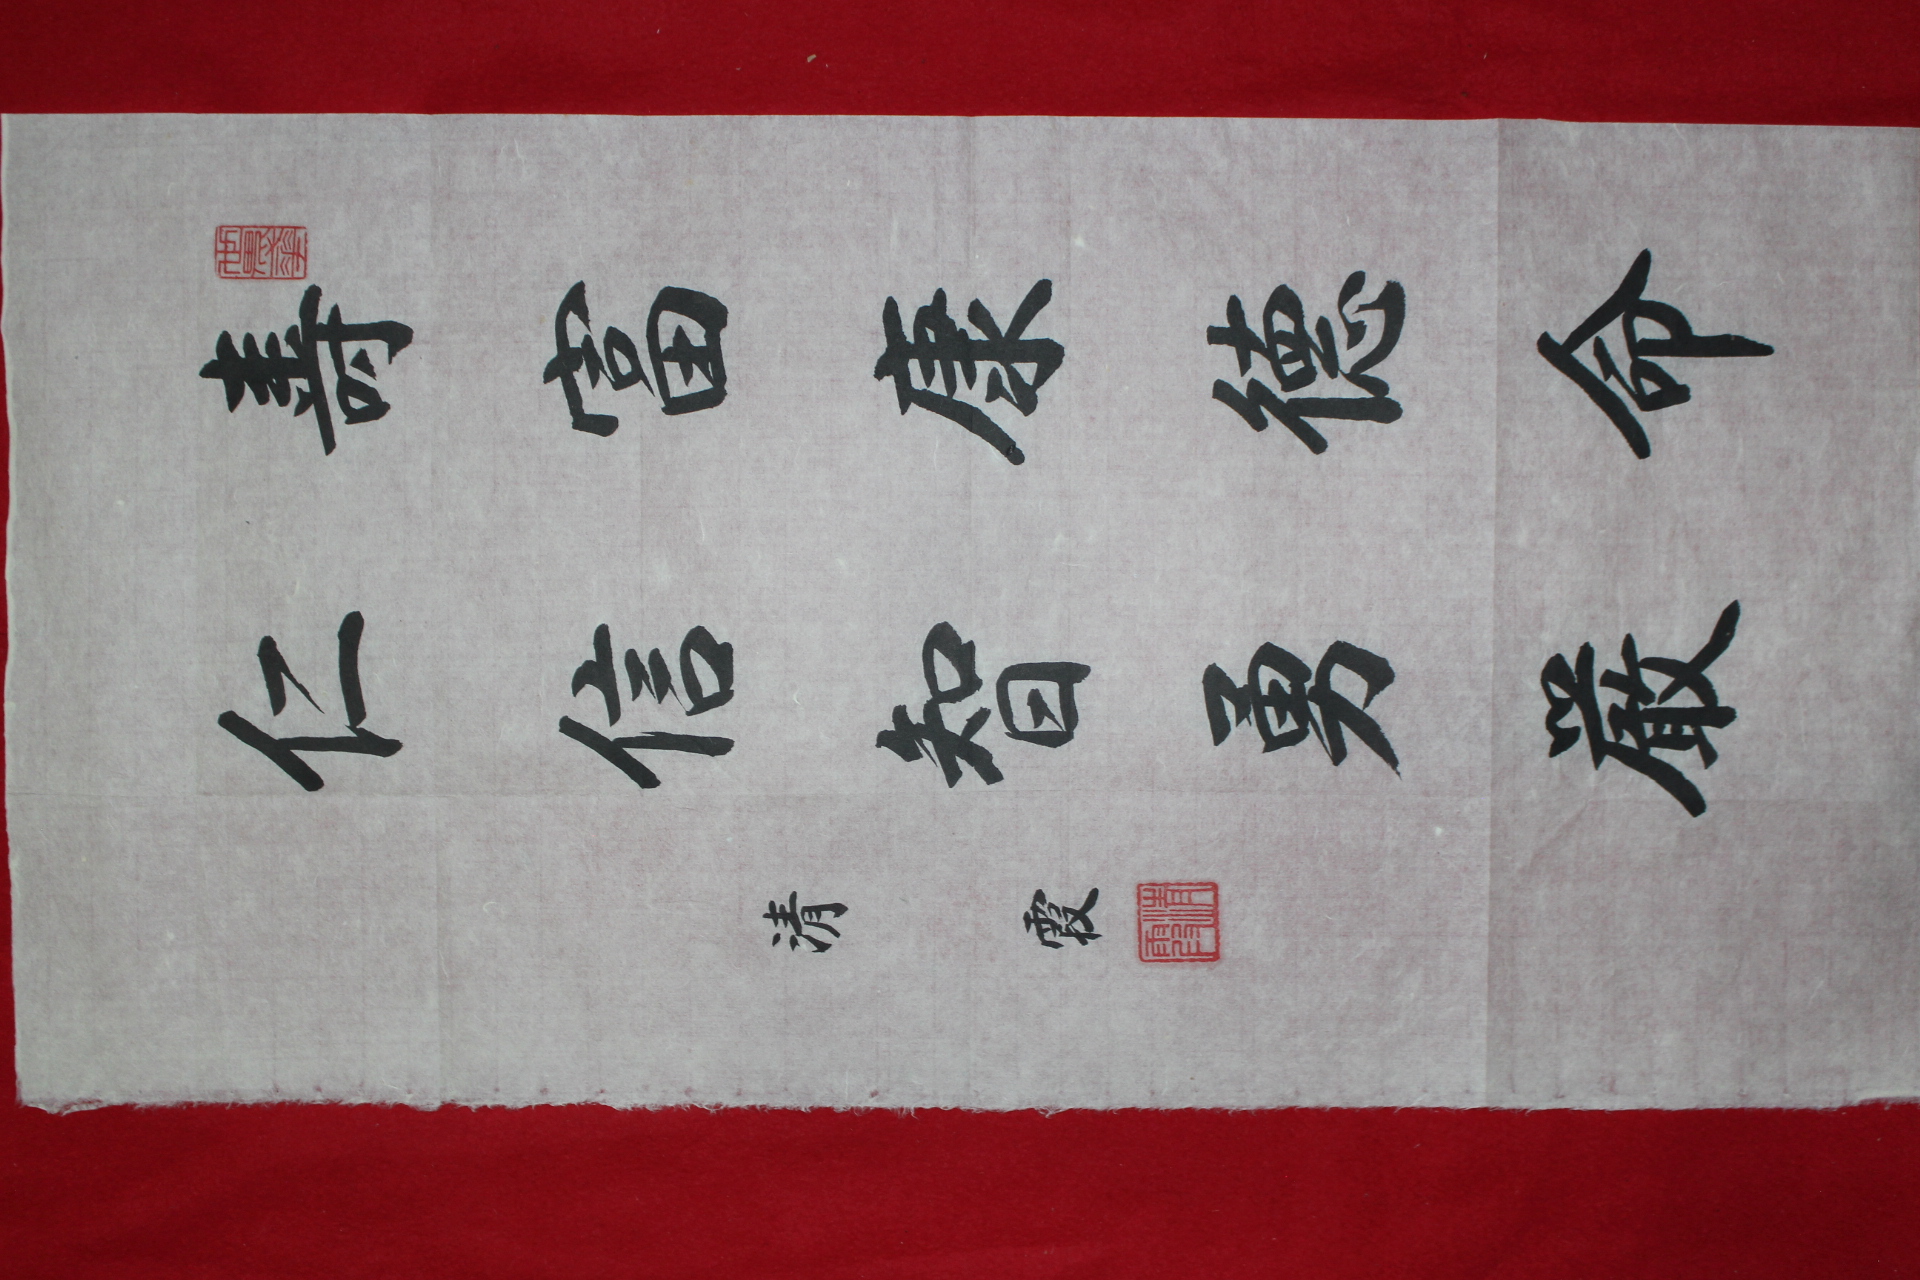 壽富康德命
仁信智勇嚴
清霞